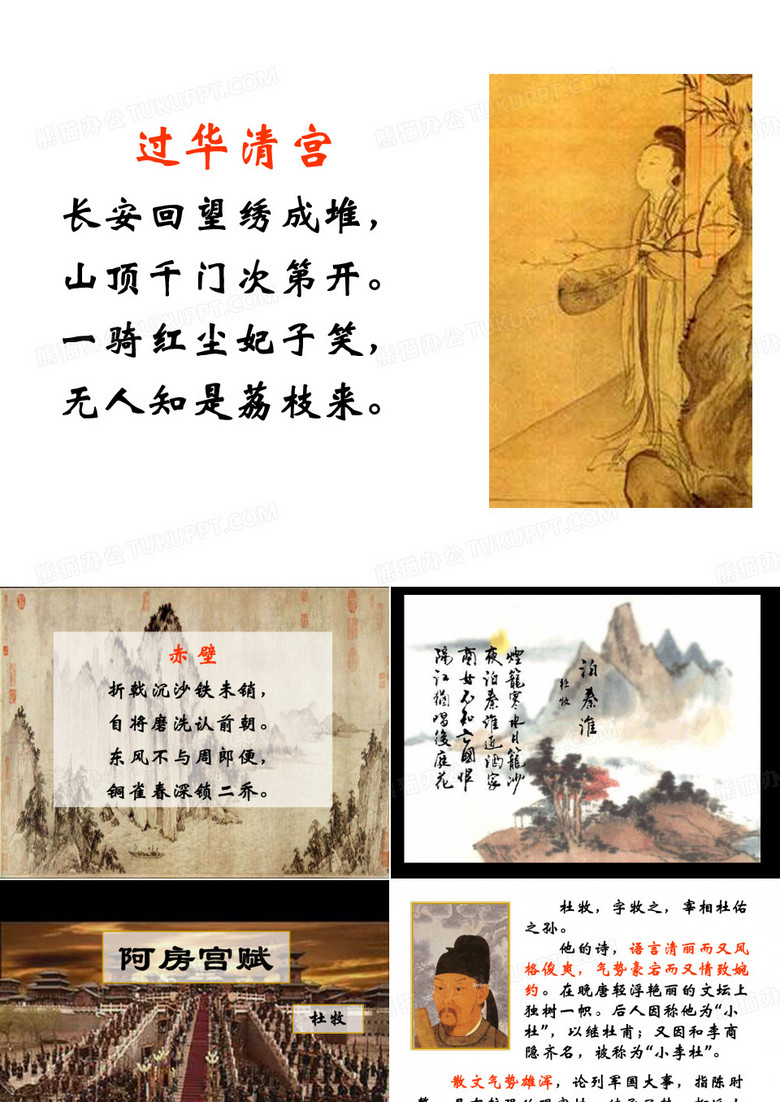 熊猫办公 TUKUPPT.COM
过华清宫
长安回望绣成堆，
山顶千门次第开。
一骑红尘妃子笑，
无人知是荔枝来。
赤壁
折戟沉沙铁未销，
自将磨洗认前朝。
东风不与周郎便，
铜雀春深锁二乔。
泊秦淮
杜牧
煙籠寒水月籠沙
夜泊秦淮近酒家
商女不知亡國恨
隔江猶唱後庭花
阿房宫赋
杜牧
杜牧，字牧之，宰相杜佑
之孙。
他的诗，语言清丽而又风
格俊爽，气势豪宕而又情致婉
约。在晚唐轻浮艳丽的文坛上
独树一帜。后人因称他为“小
杜”，以继杜甫；又因和李商
隐齐名，被称为“小李杜”。
散文气势雄浑，论列军国大事，指陈时